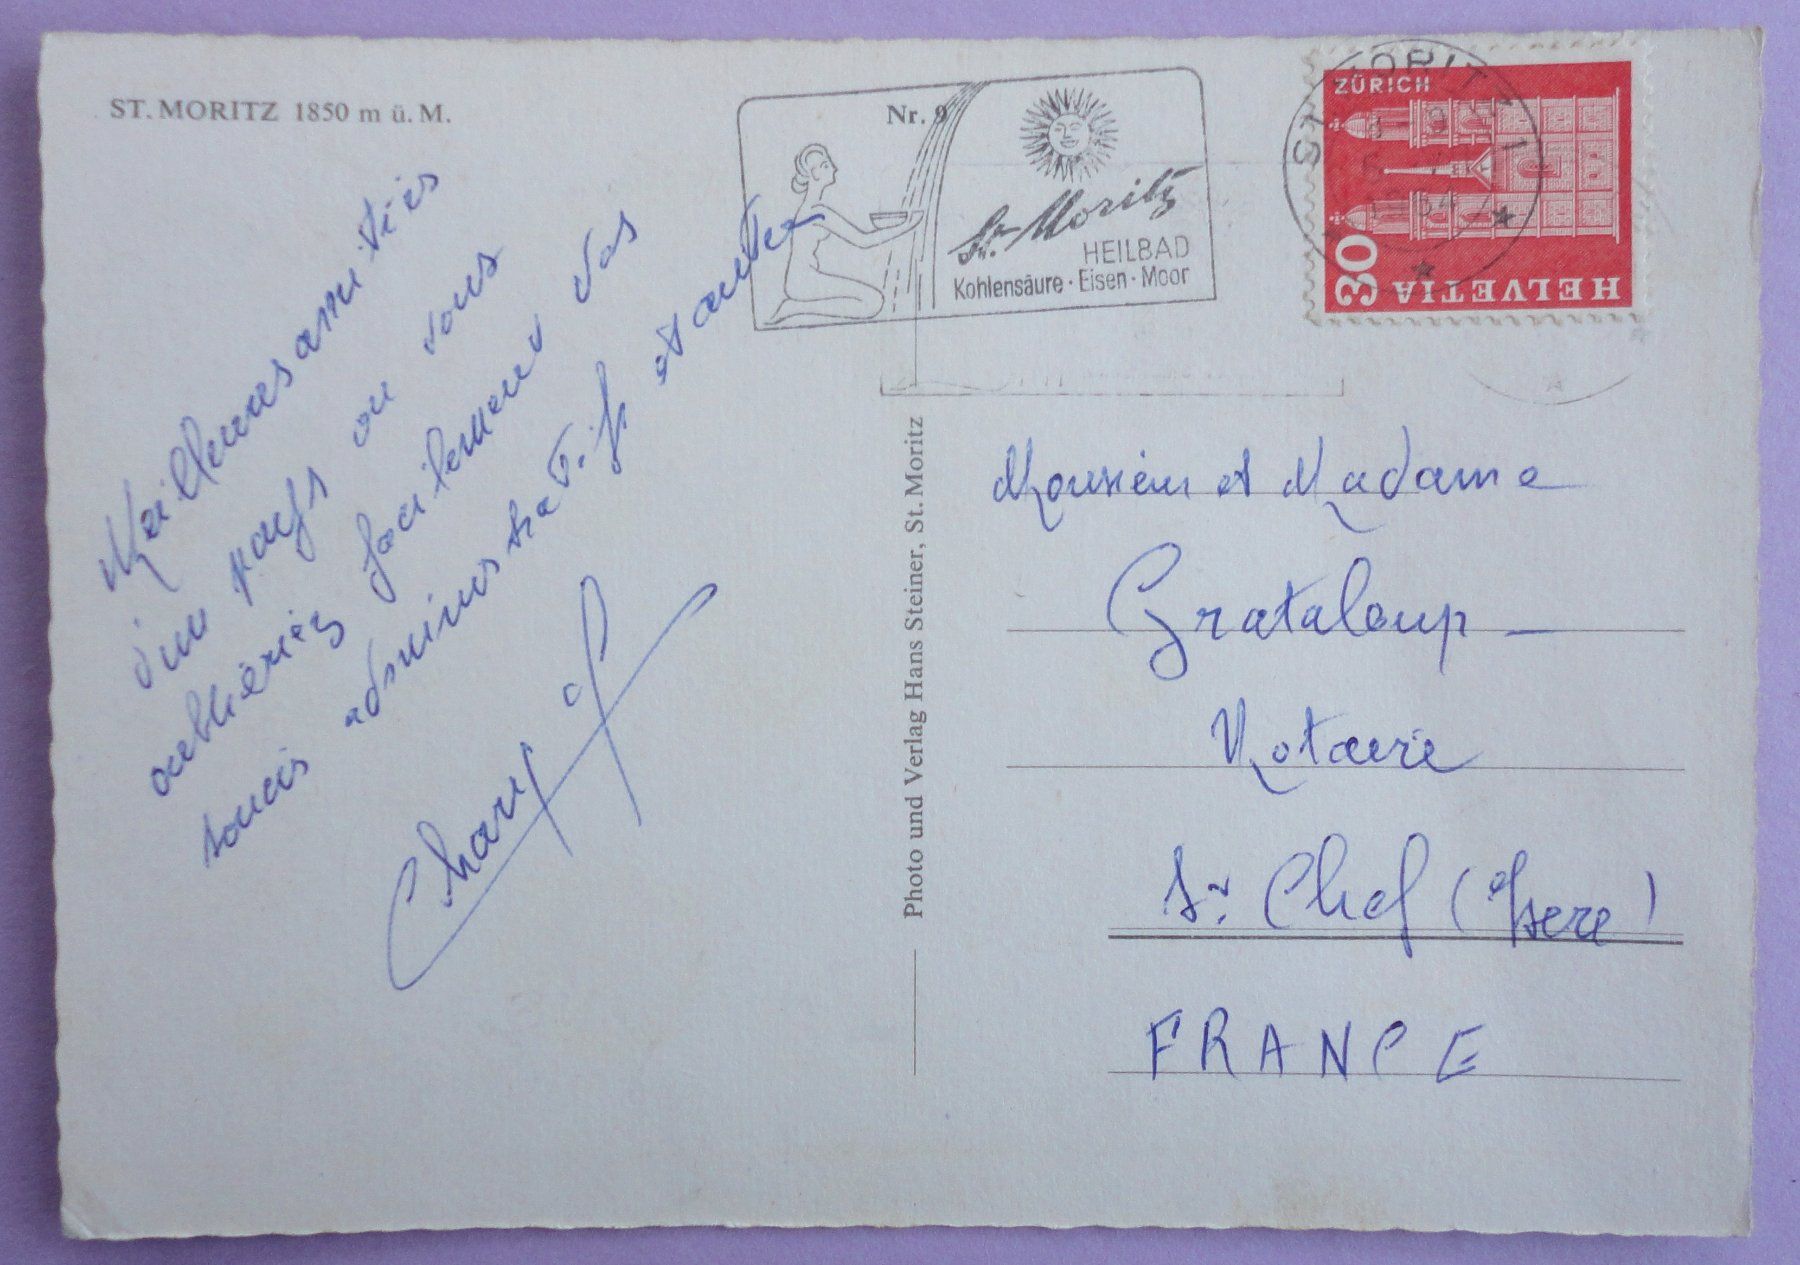 ST. MORITZ 1850 m ü. M.
Nr. 9
St. Moritz
HEILBAD
Kohlensäure · Eisen · Moor
ST. MORITZ 1
64
ZÜRICH
30
HELVETIA
Meilleures amitiés
d'un pays ou vous
oublieriez facilement vos
soucis administratifs et autres
Chary
Photo und Verlag Hans Steiner, St. Moritz
Monsieur et Madame
Grataloup –
Notaire
St Chef (Isere)
FRANCE